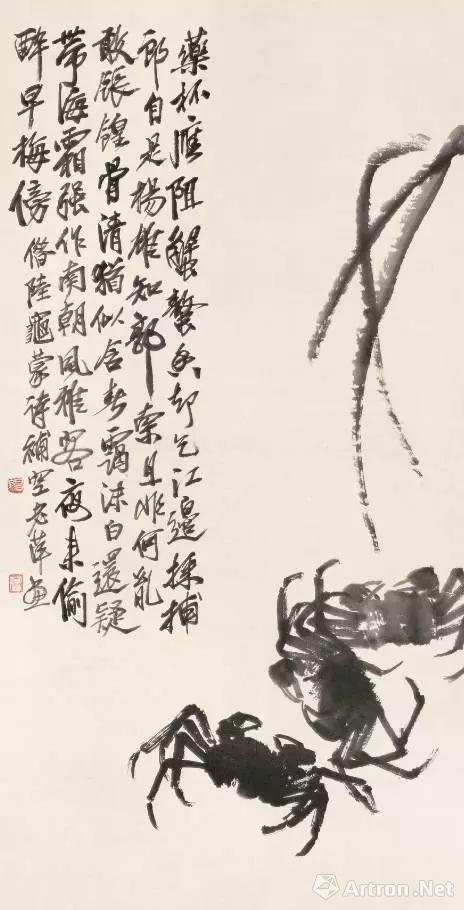 藥杯應阻蟹螯香却乞江邊採捕
郎自是楊雄知郭索且非何胤
敢餦餭骨清猶似含春靄沫白還疑
帶海霜强作南朝風雅客夜来偷
醉早梅傍
借陸龜蒙詩補空老萍畫
Artron.Net